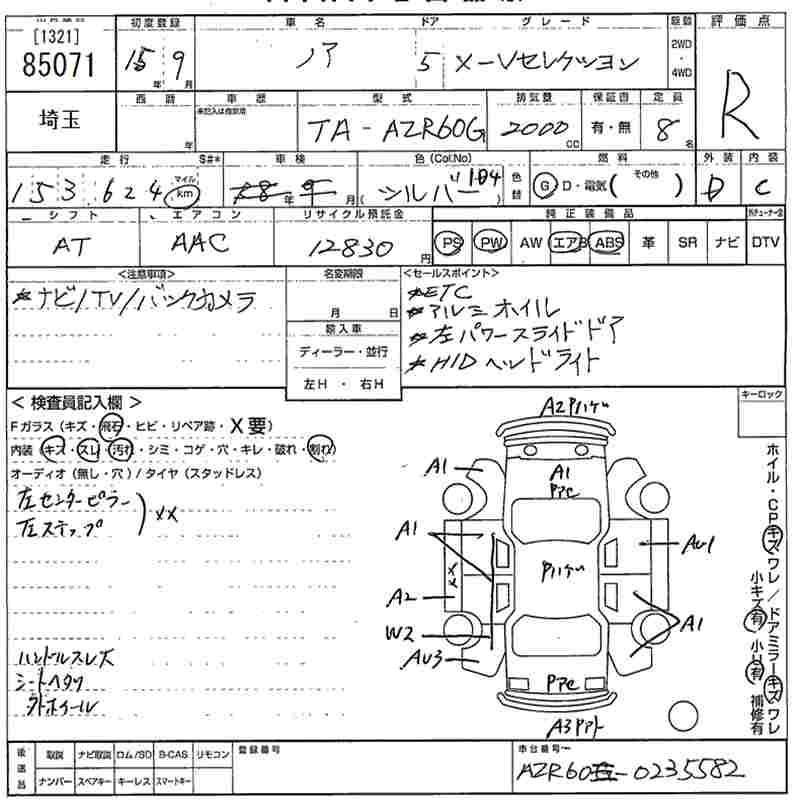 [1321]
85071
初度登録
15年 9月
車名 ドア グレード
ノア 5 X-Vセレクション
駆動
2WD・4WD
評価点
R
埼玉
西暦
年
車歴
未記入は自家用
型式
TA-AZR60G
排気量
2000 CC
保証書
有・無
定員
8名
走行 S#*
153,624 マイル km
車検
18年 9月
色(Col.No)
シルバー 1D4
色替
燃料
G D・電気(その他)
外装
D
内装
C
シフト
AT
エアコン
AAC
リサイクル預託金
12830円
純正装備品
PS PW AW エアB ABS 革 SR ナビ
DTV
<注意事項>
*ナビ/TV/バックカメラ
名変期限
月 日
輸入車
ディーラー・並行
左H・右H
<セールスポイント>
*ETC
*アルミホイル
*左パワースライドドア
*HIDヘッドライト
<検査員記入欄>
Fガラス(キズ・飛石・ヒビ・リペア跡・X要)
内装(キズ・スレ・汚れ・シミ・コゲ・穴・キレ・破れ・割れ)
オーディオ(無し・穴)/タイヤ(スタッドレス)
左センターピラー
左ステップ
XX
ハンドルスレ大
シートヘタリ
外ホイール
A2Pハゲ
A1
A1
PPC
A1
AU1
Pハゲ
XX
A2
W2
A1
AU3
PPC
A3PPト
キーロック
ホイル・CPキズワレ/ドアミラーキズワレ
小キズ有 小U有 補修有
後送品
取説 ナビ取説 ロム/SD B-CAS リモコン
ナンバー スペアキー キーレス スマートキー
登録番号
車台番号
AZR60-0235582